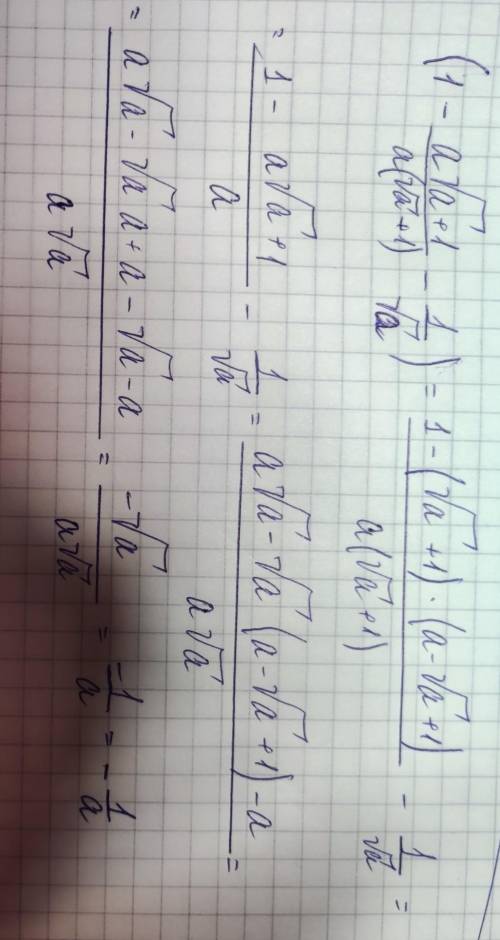 (1 - (a√a+1)/(a(√a+1)) - 1/√a) = 1 - ((√a+1)·(a-√a+1))/(a(√a+1)) - 1/√a =
= 1 - (a√a+1)/a - 1/√a = (a√a-√a(a-√a+1)-a)/(a√a) =
= (a√a-√a a+a-√a-a)/(a√a) = (-√a)/(a√a) = (-1)/a = -1/a